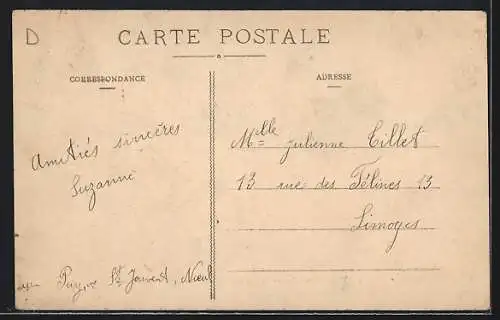 D
CARTE POSTALE
CORRESPONDANCE
ADRESSE
Amitiés sincères
Suzanne
Mlle Julienne Cillet
13 rue des Félines 13
Limoges
Puy, St